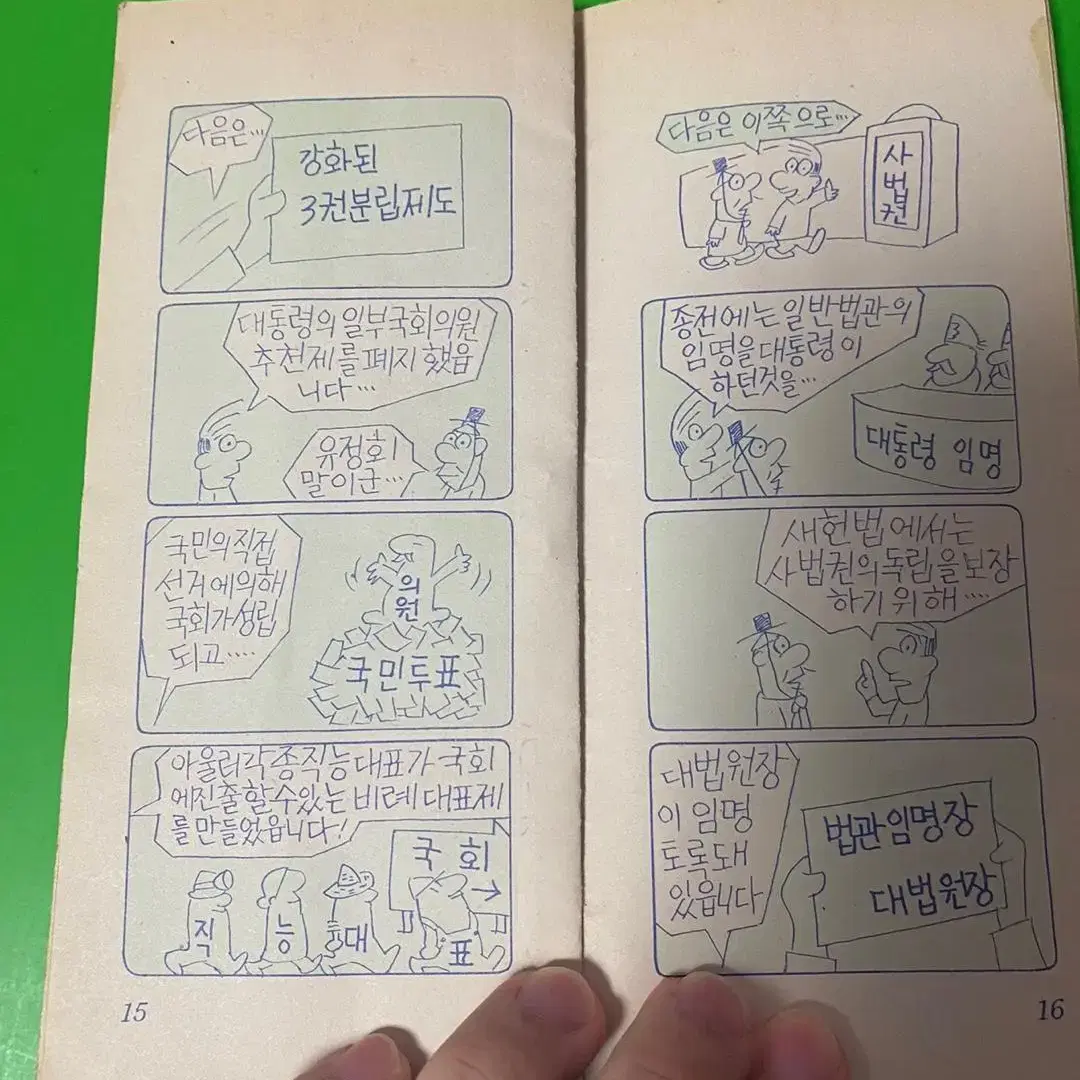 다음은…
강화된
3권분립제도
대통령의 일부국회의원
추천제를 폐지했읍
니다…
유정회
말이군…
국민의 직접
선거에의해
국회가 성립
되고…..
의
원
국민투표
아울러 각종직능대표가 국회
에진출할수있는 비례대표제
를 만들었읍니다!
국회
→
직
능
대
표
15
다음은 이쪽으로…
사
법
권
종전에는 일반법관의
임명을 대통령이
하던것을…
대통령 임명
새헌법에서는
사법권의 독립을 보장
하기 위해….
대법원장
이 임명
토록돼
있읍니다
법관임명장
대법원장
16